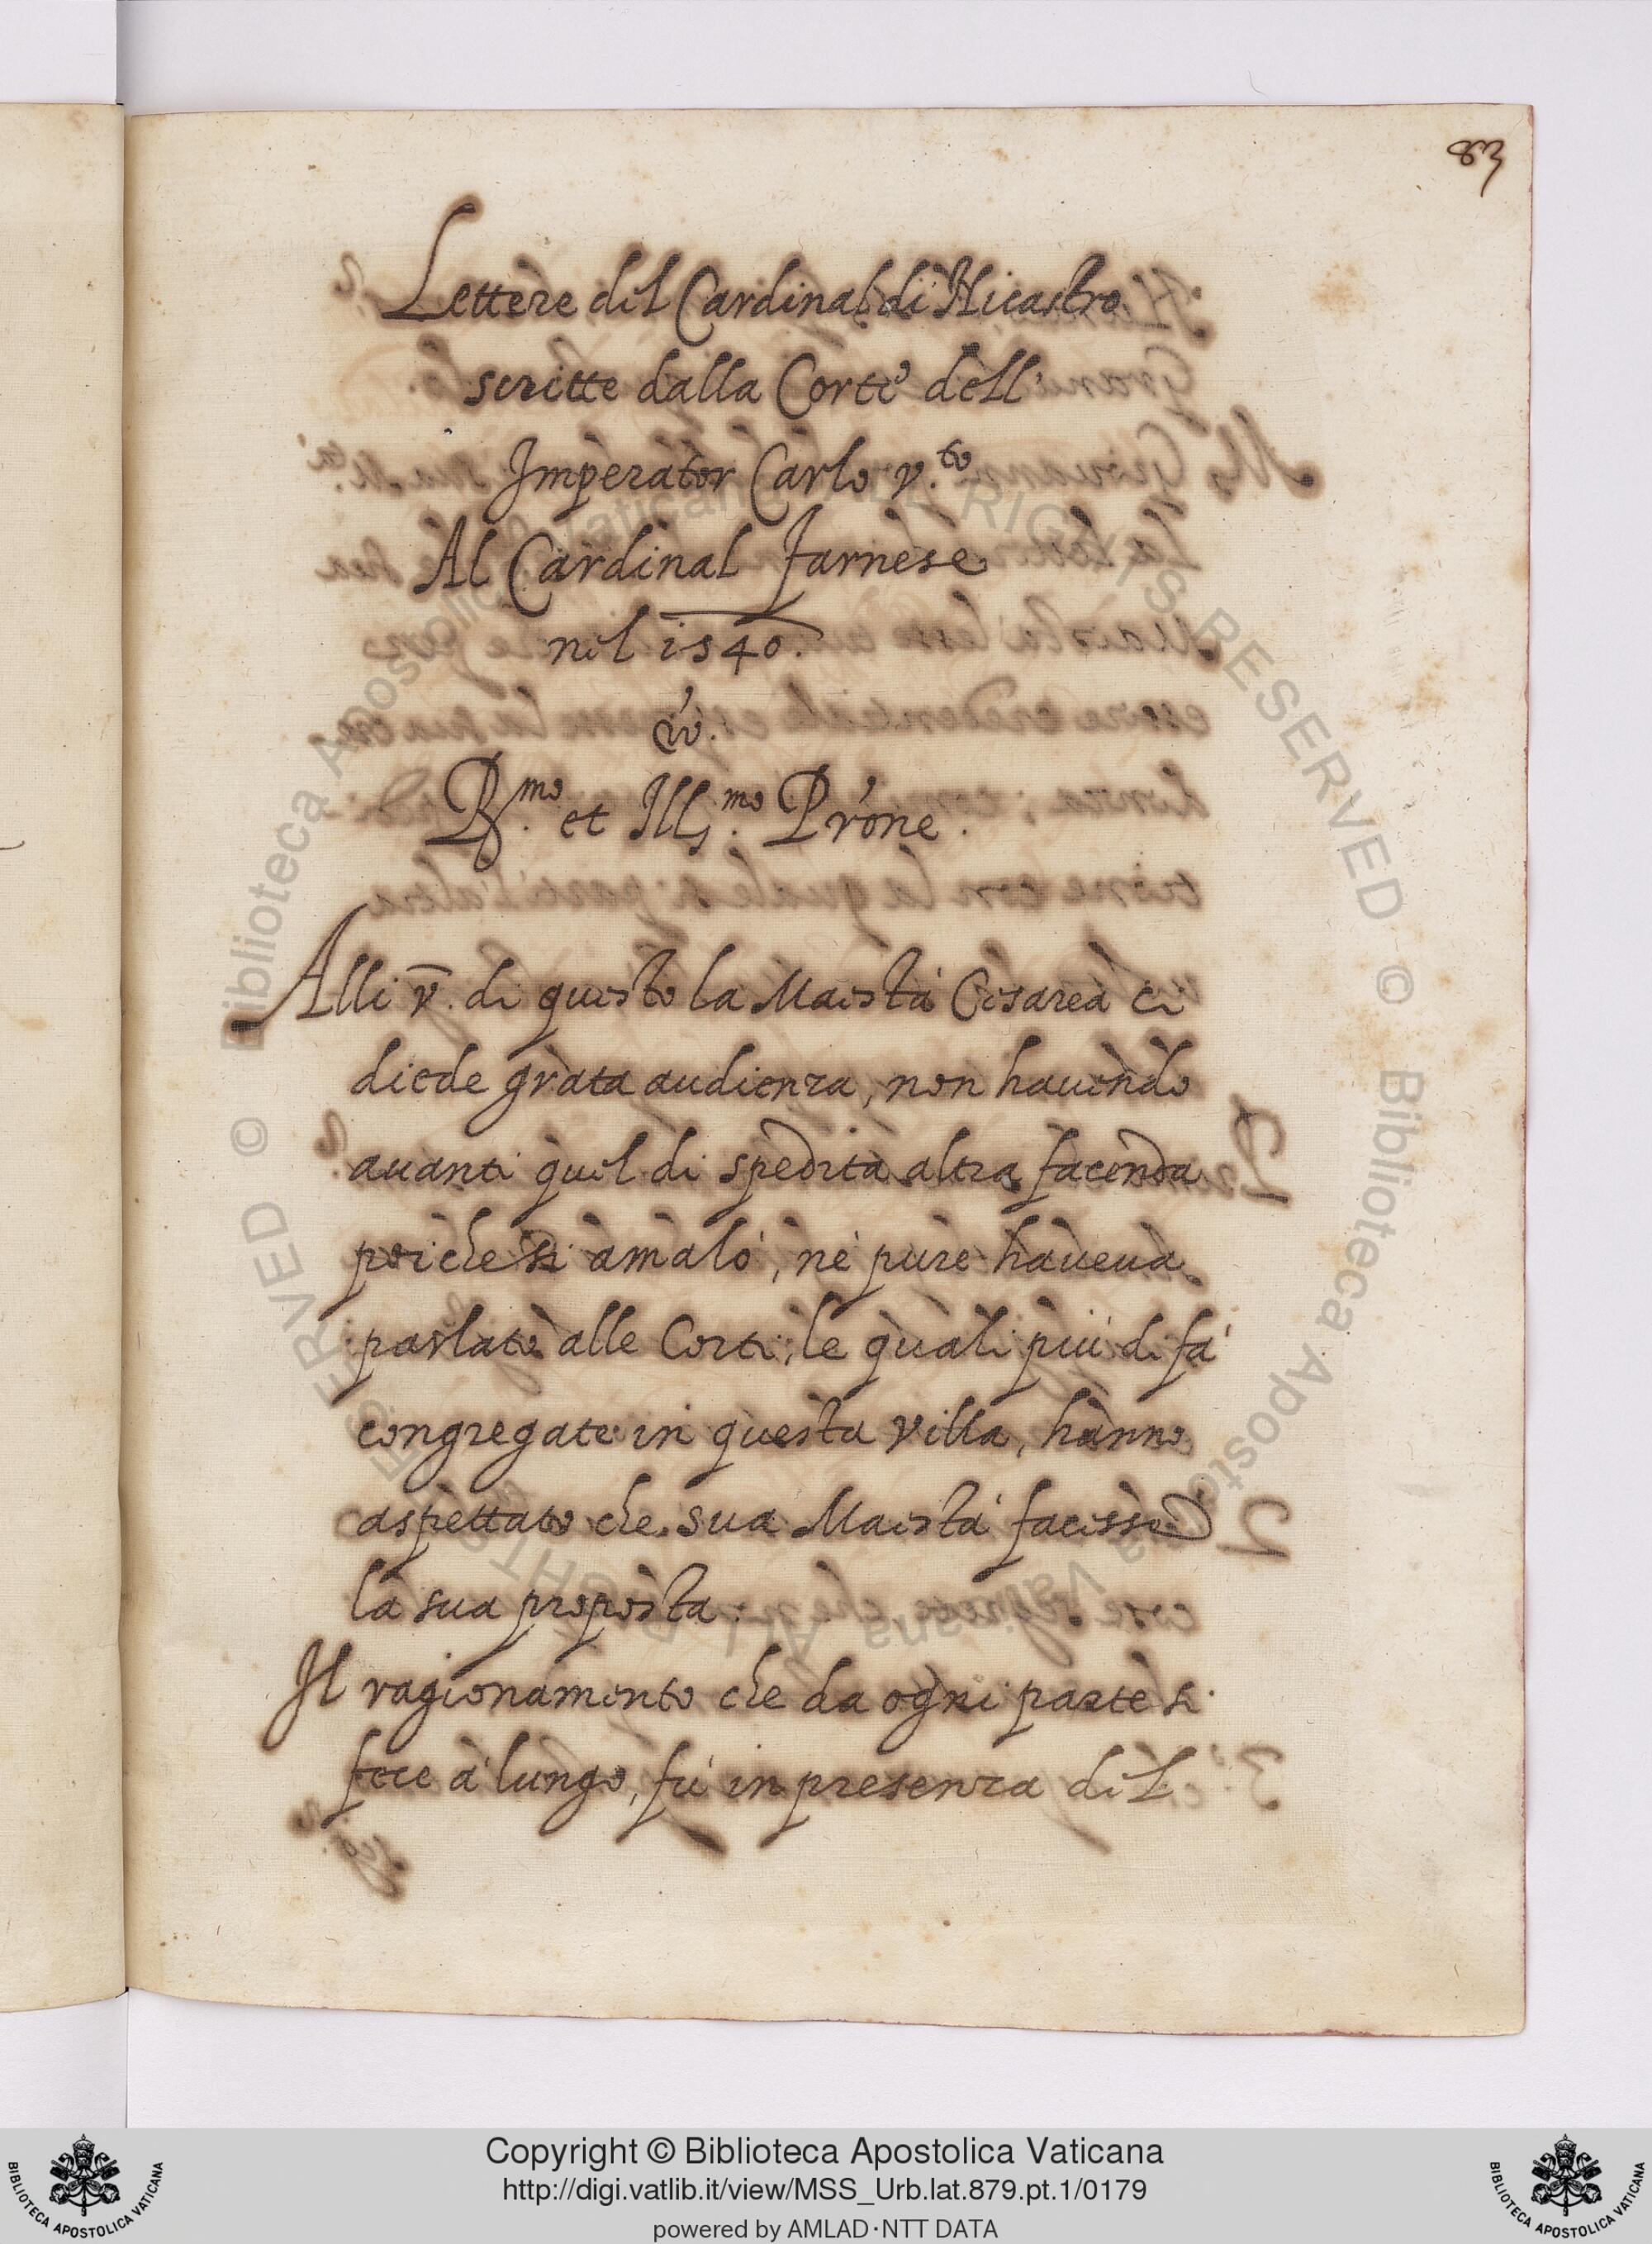 83
Lettere del Cardinal di Nicastro
scritte dalla Corte dell'
Imperator Carlo V.to
Al Cardinal Farnese
nel 1540.
R.mo et Ill.mo Pr'one.
Alli V. di questo la Maestà Cesarea ci
diede grata audienza, non havendo
avanti quel di spedita altra facenda
poi che si amalò, nè pure haveva
parlato alle Corti, le quali più di fà
congregate in questa villa, hanno
aspettato che sua Maestà facesse
la sua proposta.
Il ragionamento che da ogni parte si
fece à lungo, fù in presenza del
Copyright © Biblioteca Apostolica Vaticana
http://digi.vatlib.it/view/MSS_Urb.lat.879.pt.1/0179
powered by AMLAD·NTT DATA
BIBLIOTECA APOSTOLICA VATICANA
BIBLIOTECA APOSTOLICA VATICANA